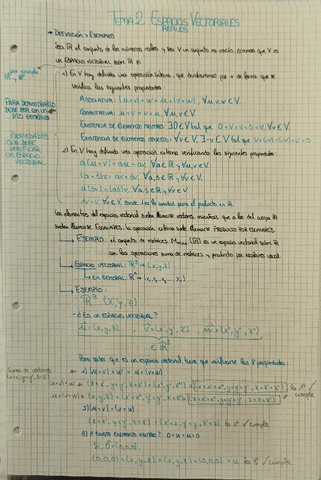 TEMA 2 ESPACIOS VECTORIALES
REALES
→ DEFINICIÓN + EJEMPLOS
Sea ℝ el conjunto de los números reales y sea V un conjunto no vacío, diremos que V es
un ESPACIO VECTORIAL sobre ℝ
1) En V hay definida una operación interna, que denotaremos por + de forma que se
verifica las siguientes propiedades
ASOCIATIVA: (u+v)+w = u+(v+w), ∀u,v,w ∈ V.
CONMUTATIVA: u+v = v+u, ∀u,v ∈ V.
EXISTENCIA DE ELEMENTO NEUTRO: ∃0 ∈ V tal que 0+v = v+0 = v, ∀v ∈ V.
EXISTENCIA DE ELEMENTO OPUESTO: ∀v ∈ V, ∃-v ∈ V tal que v+(-v) = (-v)+v = 0
PARA DEMOSTRARLO
DEBE SER CON UN
PROPIEDADES
QUE DEBE
VERIFICAR
UN ESPACIO
VECTORIAL
2) En V hay definida una operación externa verificando las siguientes propiedades
a(u+v) = au + av, ∀a ∈ ℝ, ∀u,v ∈ V.
(a+b)v = av + bv, ∀a,b ∈ ℝ, ∀v ∈ V.
a(bv) = (ab)v, ∀a,b ∈ ℝ, ∀v ∈ V.
1v = v, ∀v ∈ V, donde 1 es la unidad para el producto en ℝ.
Los elementos del espacio vectorial suelen llamarse VECTORES, mientras que a los del cuerpo ℝ
suelen llamarse ESCALARES. La operación externa suele llamarse PRODUCTO POR ESCALARES.
→ EJEMPLO: el conjunto de matrices (ℝ) es un espacio vectorial sobre ℝ
con las operaciones suma de matrices y producto por escalares usual
→ ESPACIO VECTORIAL: ℝ³ → (x,y,z)
→ EN GENERAL: ℝⁿ →
→ EJEMPLO:
ℝ³ (x,y,z)
- ¿Es un ESPACIO VECTORIAL?
u = (x,y,z), v = (x',y',z'), w = (x'',y'',z'')
∈ ℝ³
Para saber que es un espacio vectorial, tiene que verificarse las 8 propiedades:
Suma de vectores
1) (u+v)+w = u+(v+w)
la 1ª ✓ cumple
2) (u+v) = (v+u)
la 2ª ✓ cumple
3) ¿Existe elemento neutro? 0+u = u+0
(0,0,0)
(0,0,0)+(x,y,z) = (x,y,z)+(0,0,0) = u la 3ª ✓ cumple